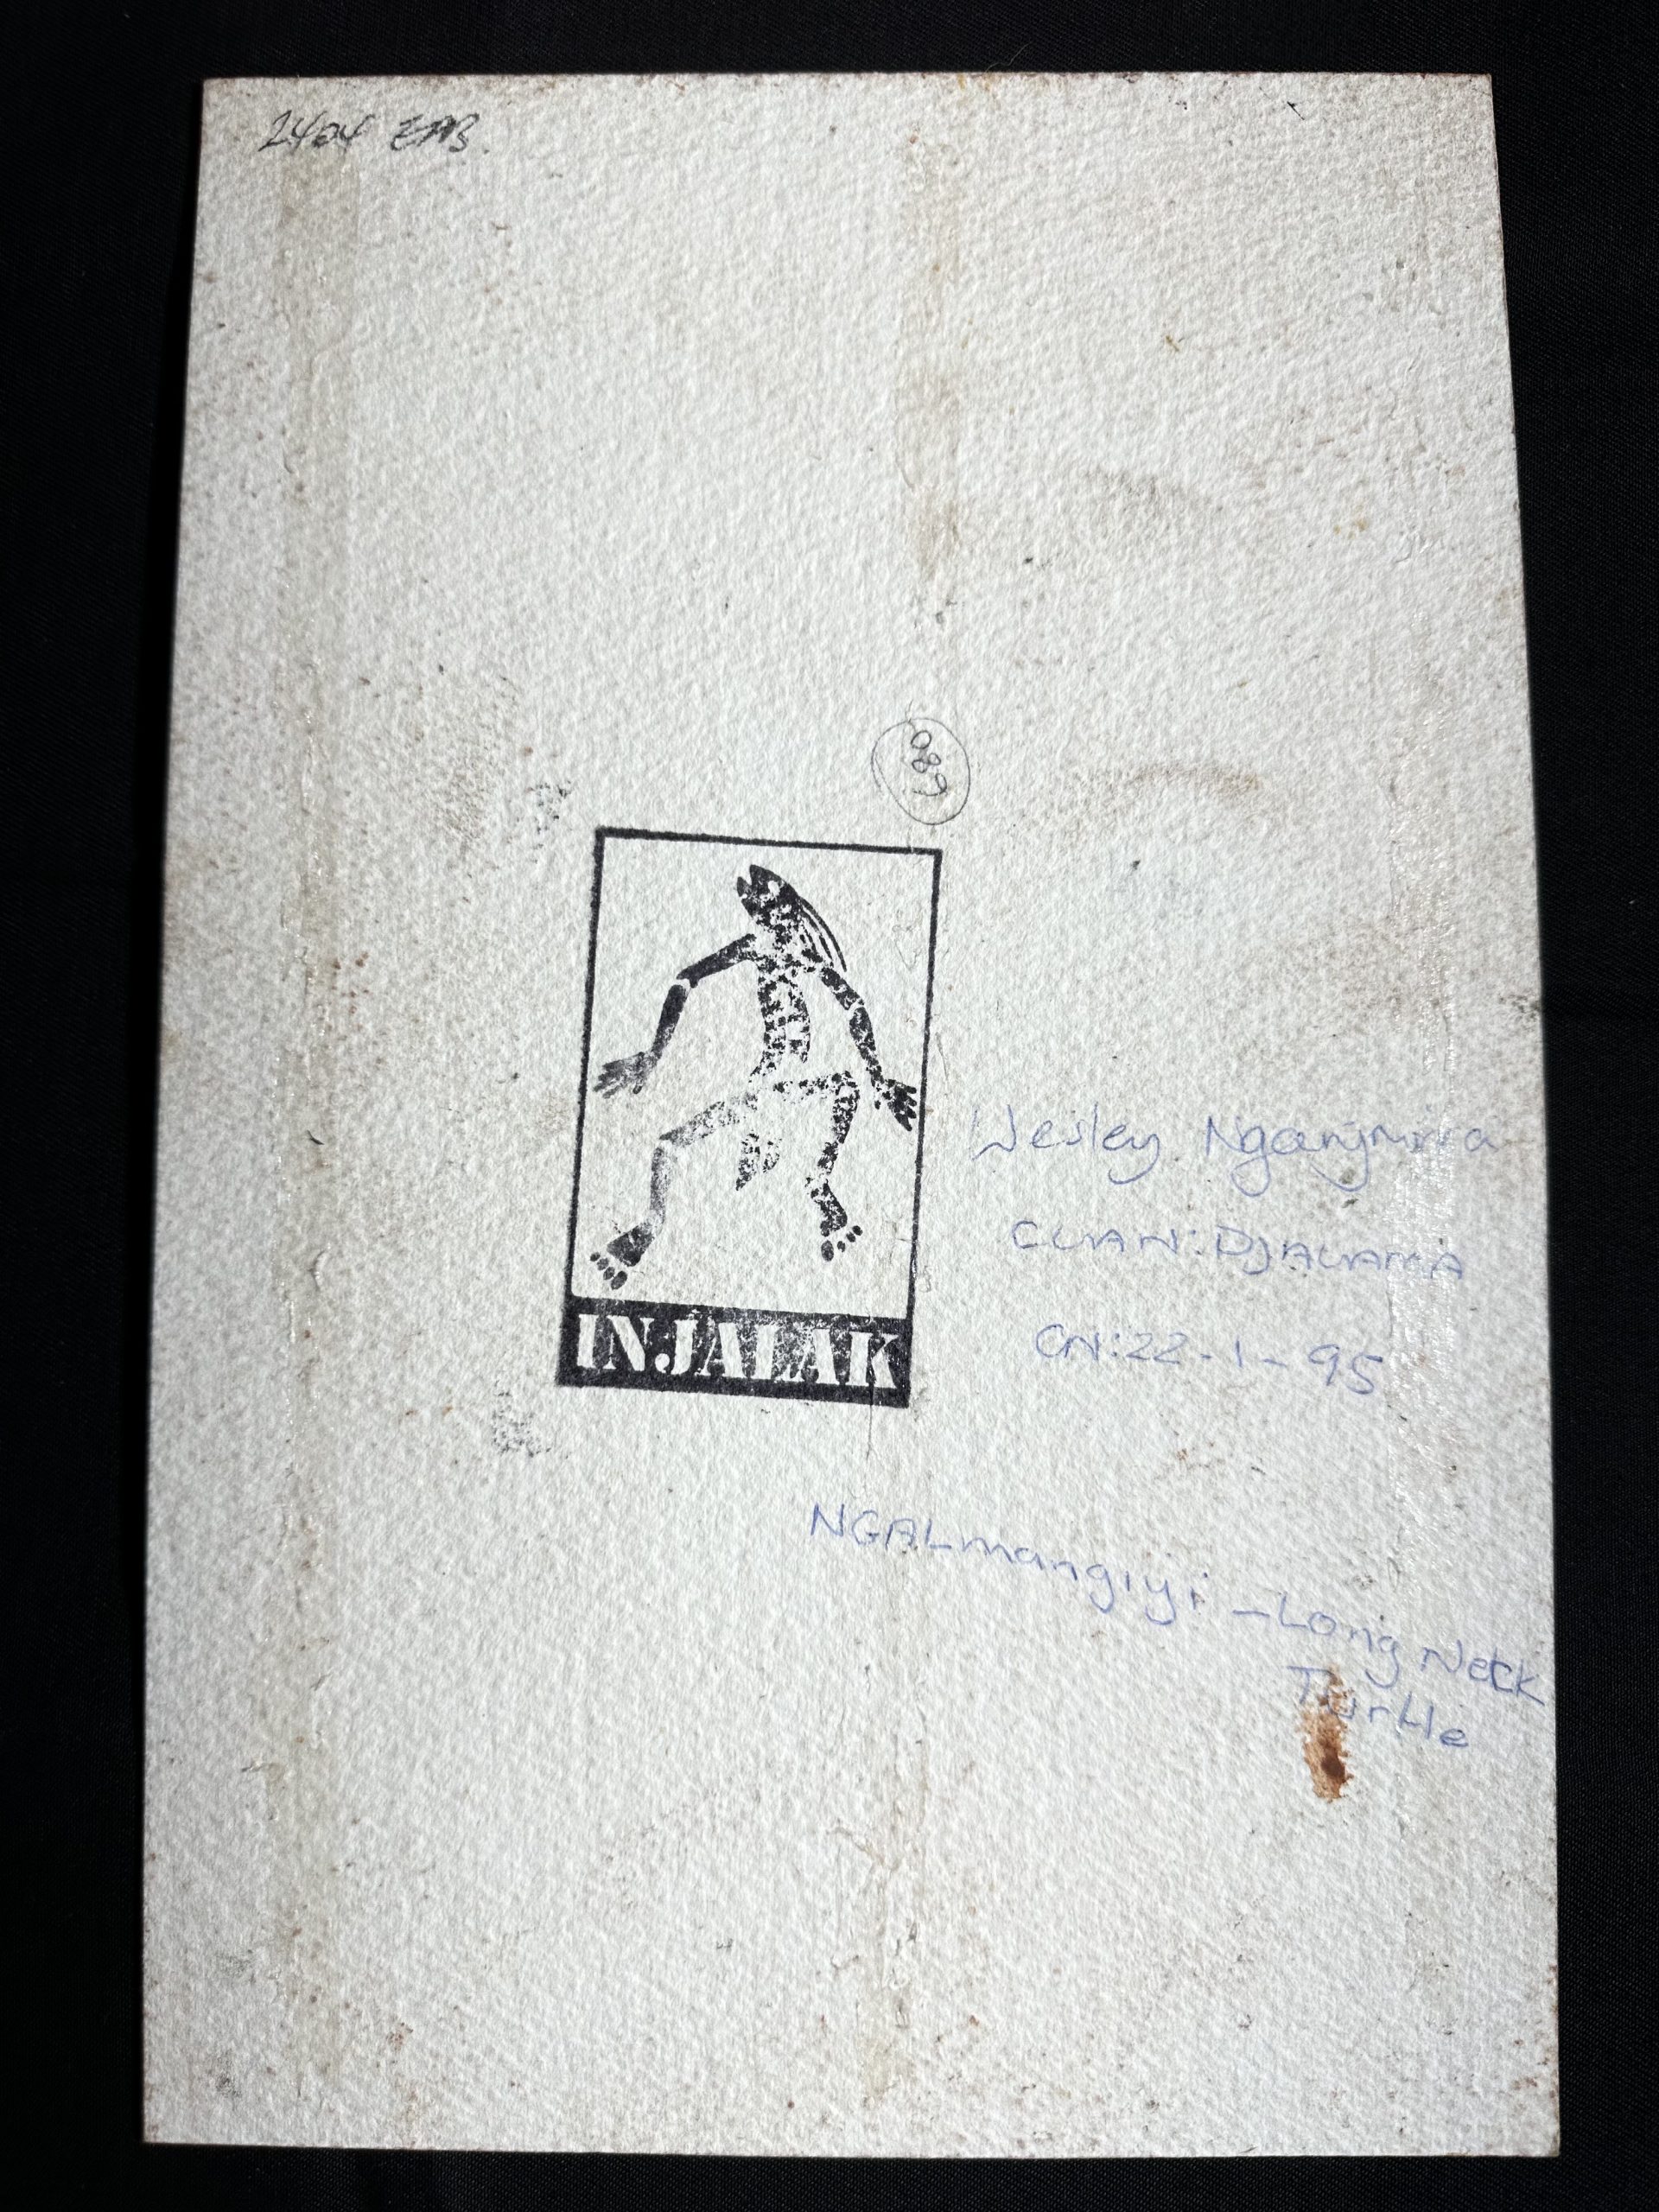 2404 EAB.
089
INJALAK
Wesley Nganjmirra
CLAN: DJALAMA
CN: 22-1-95
NGALmangiyi - Long Neck
Turtle